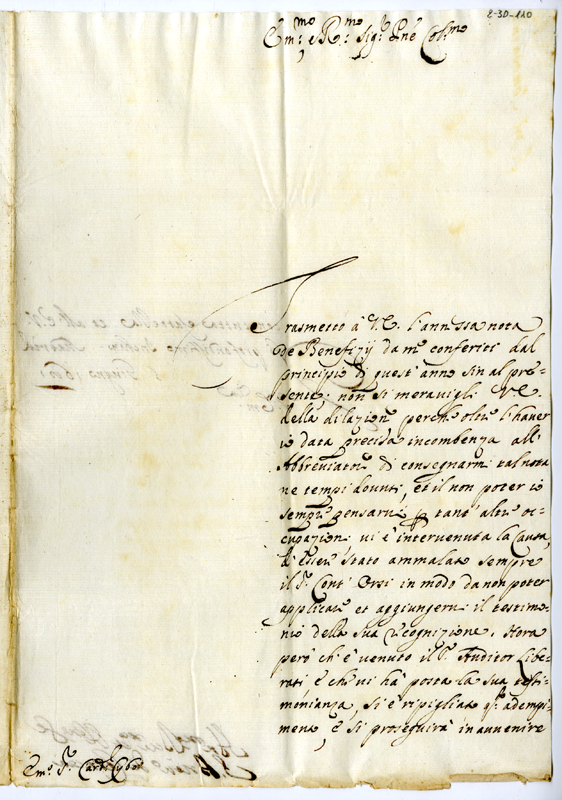 E-30-110
Em:mo e R:mo Sig.r Pne Col:mo
Trasmetto à V.E. l'annessa nota
de Beneficij da me conferiti dal
principio di quest'anno sin al pre=
sente; non si meravigli V.E.
della dilazione perche oltre l'haver
io data precisa incombenza all'
Abbreviatore di consegnarmi tal nota
ne tempi dovuti, et il non poter io
sempre pensarvi per tant'altre oc=
cupazioni vi è intervenuta la Causa,
d'esser stato ammalato sempre
il S.r Cont'Orsi in modo da non poter
applicare et aggiungervi il testimo=
nio della sua recognizione. Hora
però ch'è venuto il S.r Auditor Libe=
rati e che vi hà posta la sua testi=
monianza, si è ripigliato q.to adempi=
mento, e si proseguirà in avvenire
Em.o S.r Card.l Cybo